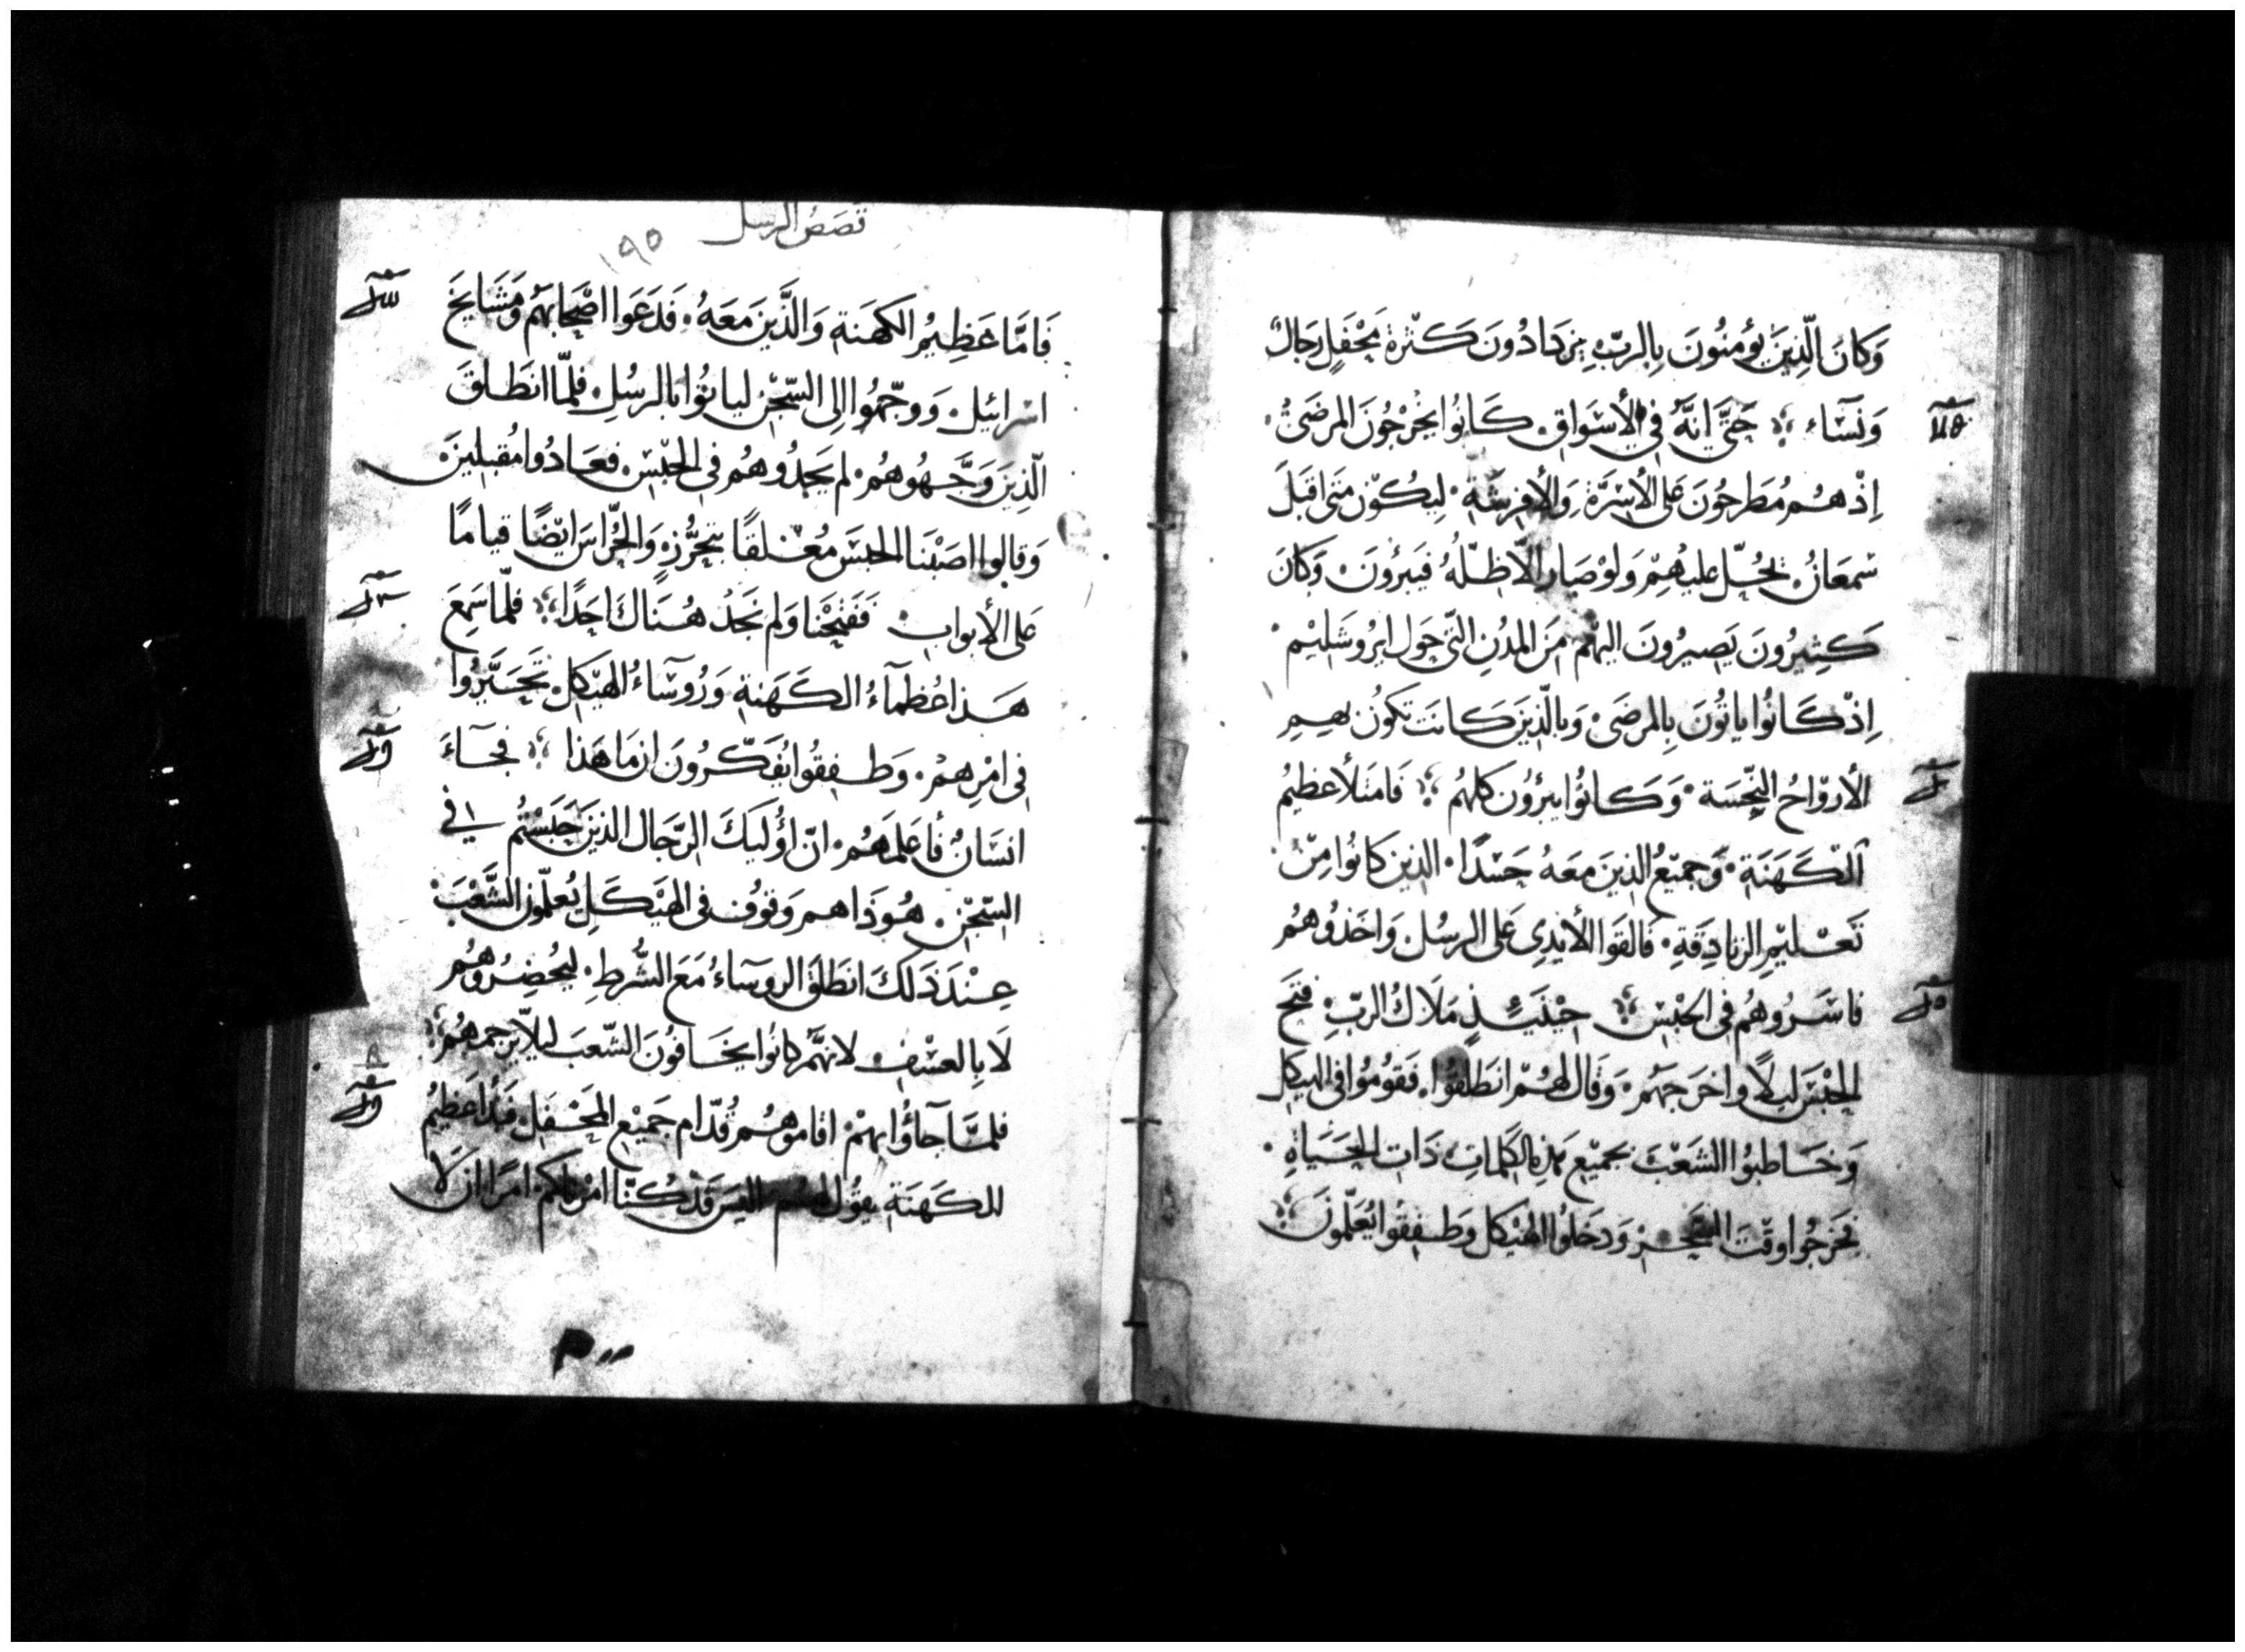 وَكانَ الَّذِينَ يؤمنُونَ بِالربِّ يزدَادُونَ كَثْرة بمحْفَلِ رجَال
وَنسَآء ❊ حَتَّى اِنَّهُ في الأسْوَاقِ كَانوُا يخْرجُونَ المرضَى
اِذْ هُم مُطَرحُونَ عَلى الأسْرَّة وَالأفرشَةِ لِيكُوْن مَتى اقبَلَ
سْمعَانُ يحُلّ عليهُمْ وَلوْ صَار الّا ظِلّهُ فيَبرؤنَ وَكانَ
كَثِيرُونَ يَصيرُونَ اليهْم مَن المدُنِ التّي حَول ايرُوشَلِيْم
اِذْ كَانوُا ياتوُنَ بِالمرضَى وَبالّذِينَ كَانَت تكوُن بهمِ
الأروَاحُ النِّجسَة وَكَانوُا يبرؤن كلهُم ❊ فَامتلأ عظيمُ
الكَهَنَةِ وَجميْعُ الذينَ معَهُ حَسَدًا الذين كانوُا مِنْ
تَعْليْمِ الزنادِقَةِ فَالقَوا الأيْدِي عَلى الرسُل وَاخَذوُهُم
فاسَروُهُم في الحبْسِ ❊ حِيْنَئِذٍ مَلَاكُ الربِّ فتحَ
الحبْسَ ليلًا واخرَجهُم وَقال لهُمْ انطَلقوُا فقوُموُا في الهيكل
وَخَاطبوُا الشعْبَ بجميْع هذه الكَلمَاتِ ذَات الحَيَاةِ
فخرجوُا وقْتَ السَّحَر وَدخَلوُا الهَيْكل وَطفِقوُا يُعَلّموُنَ
قصَصُ الرسل
١٩٥
فَامَّا عَظِيْمُ الكهَنة وَالَّذينَ مَعَهُ فَدَعَوا اصْحَابَهُم وَمشَايخَ
اسْرائيل وَوجّهوُا اِلى السّجْن لياتوُا بالرسُلِ فلمَّا انطَلقَ
الّذِينَ وَجَّهُوهُم لم يَجِدُوهُم في الحَبْسِ فعَادُوا مُقبلِينَ
وَقالوا اصَبْنَا الحبْسَ مُغْلقًا بتحَرُّز وَالحُرَّاسَ ايْضًا قيامًا
عَلى الأبوابِ فَفَتَحْنا وَلم نجَدْ هُنَاكَ احَدًا ❊ فلمّا سَمِعَ
هَذا عُظمآءُ الكَهَنةِ وَرُوسَآءُ الهَيْكلِ تَحَيَّرُوا
في امْرهِمْ وَطفِقوُا يُفكّرُونَ ان مَا هَذا ❊ فجَآءَ
انسَانُ فأعَلمَهُم انّ اؤُليكَ الرّجَال الذينَ حَبَسْتُم في
السّجْن هُوذَا هم وَقوُف في الهَيْكَلِ يُعلّموُن الشَّعْبَ
عِنْدَ ذَلكَ انطَلَقَ الروسَآءُ مَعَ الشُّرطِ ليُحْضِرُوهُم
لَا بالعسْف لانهُّم كانوُا يخَافُونَ الشّعبَ ليلّا يَرجمُهُم ❊
فلمَّا جآؤُا بهمْ اقاموهُم قُدّام جَميْعِ المحْفَلِ فبَدَأ عَظِيمُ
للكَهَنَةِ يقوُل لهُم اليسَ قَدْ كُنّا امْرناكمْ امرًا ان لَا